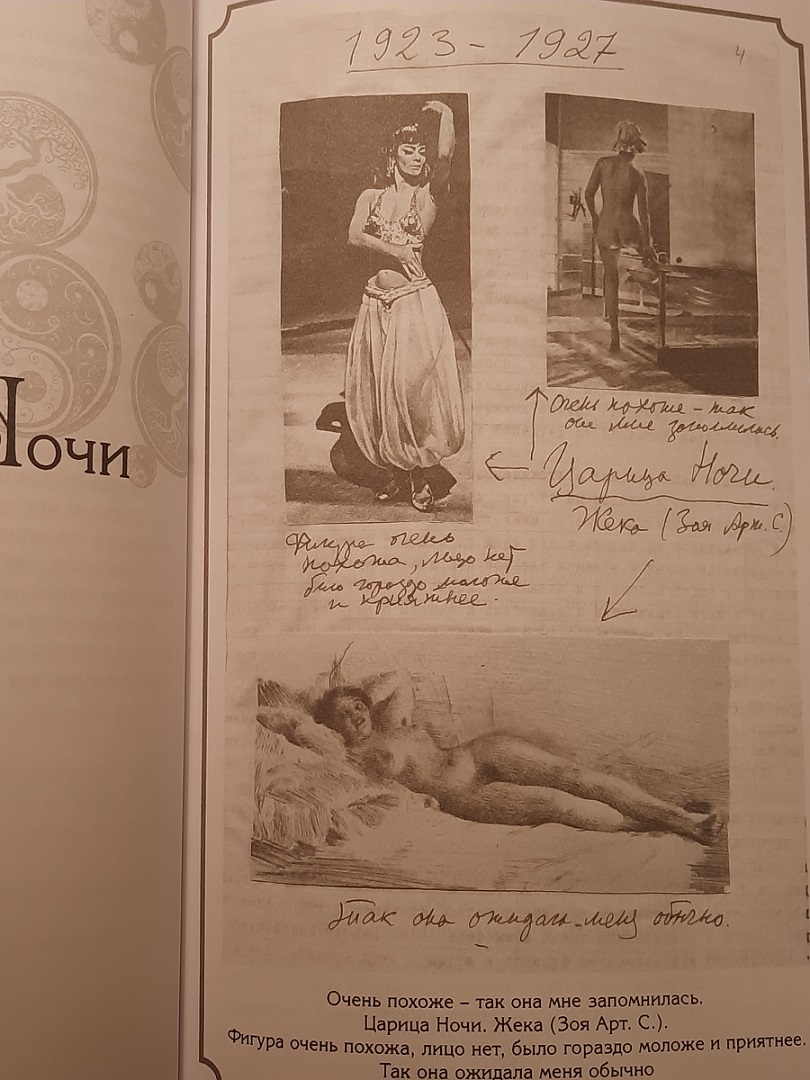 Ночи
1923 - 1927
4
Очень похоже - так
она мне запомнилась.
Царица Ночи.
Жека (Зоя Арт. С.)
Фигура очень
похожа, лицо нет
было гораздо моложе
и приятнее.
Так она ожидала меня обычно.
Очень похоже – так она мне запомнилась.
Царица Ночи. Жека (Зоя Арт. С.).
Фигура очень похожа, лицо нет, было гораздо моложе и приятнее.
Так она ожидала меня обычно